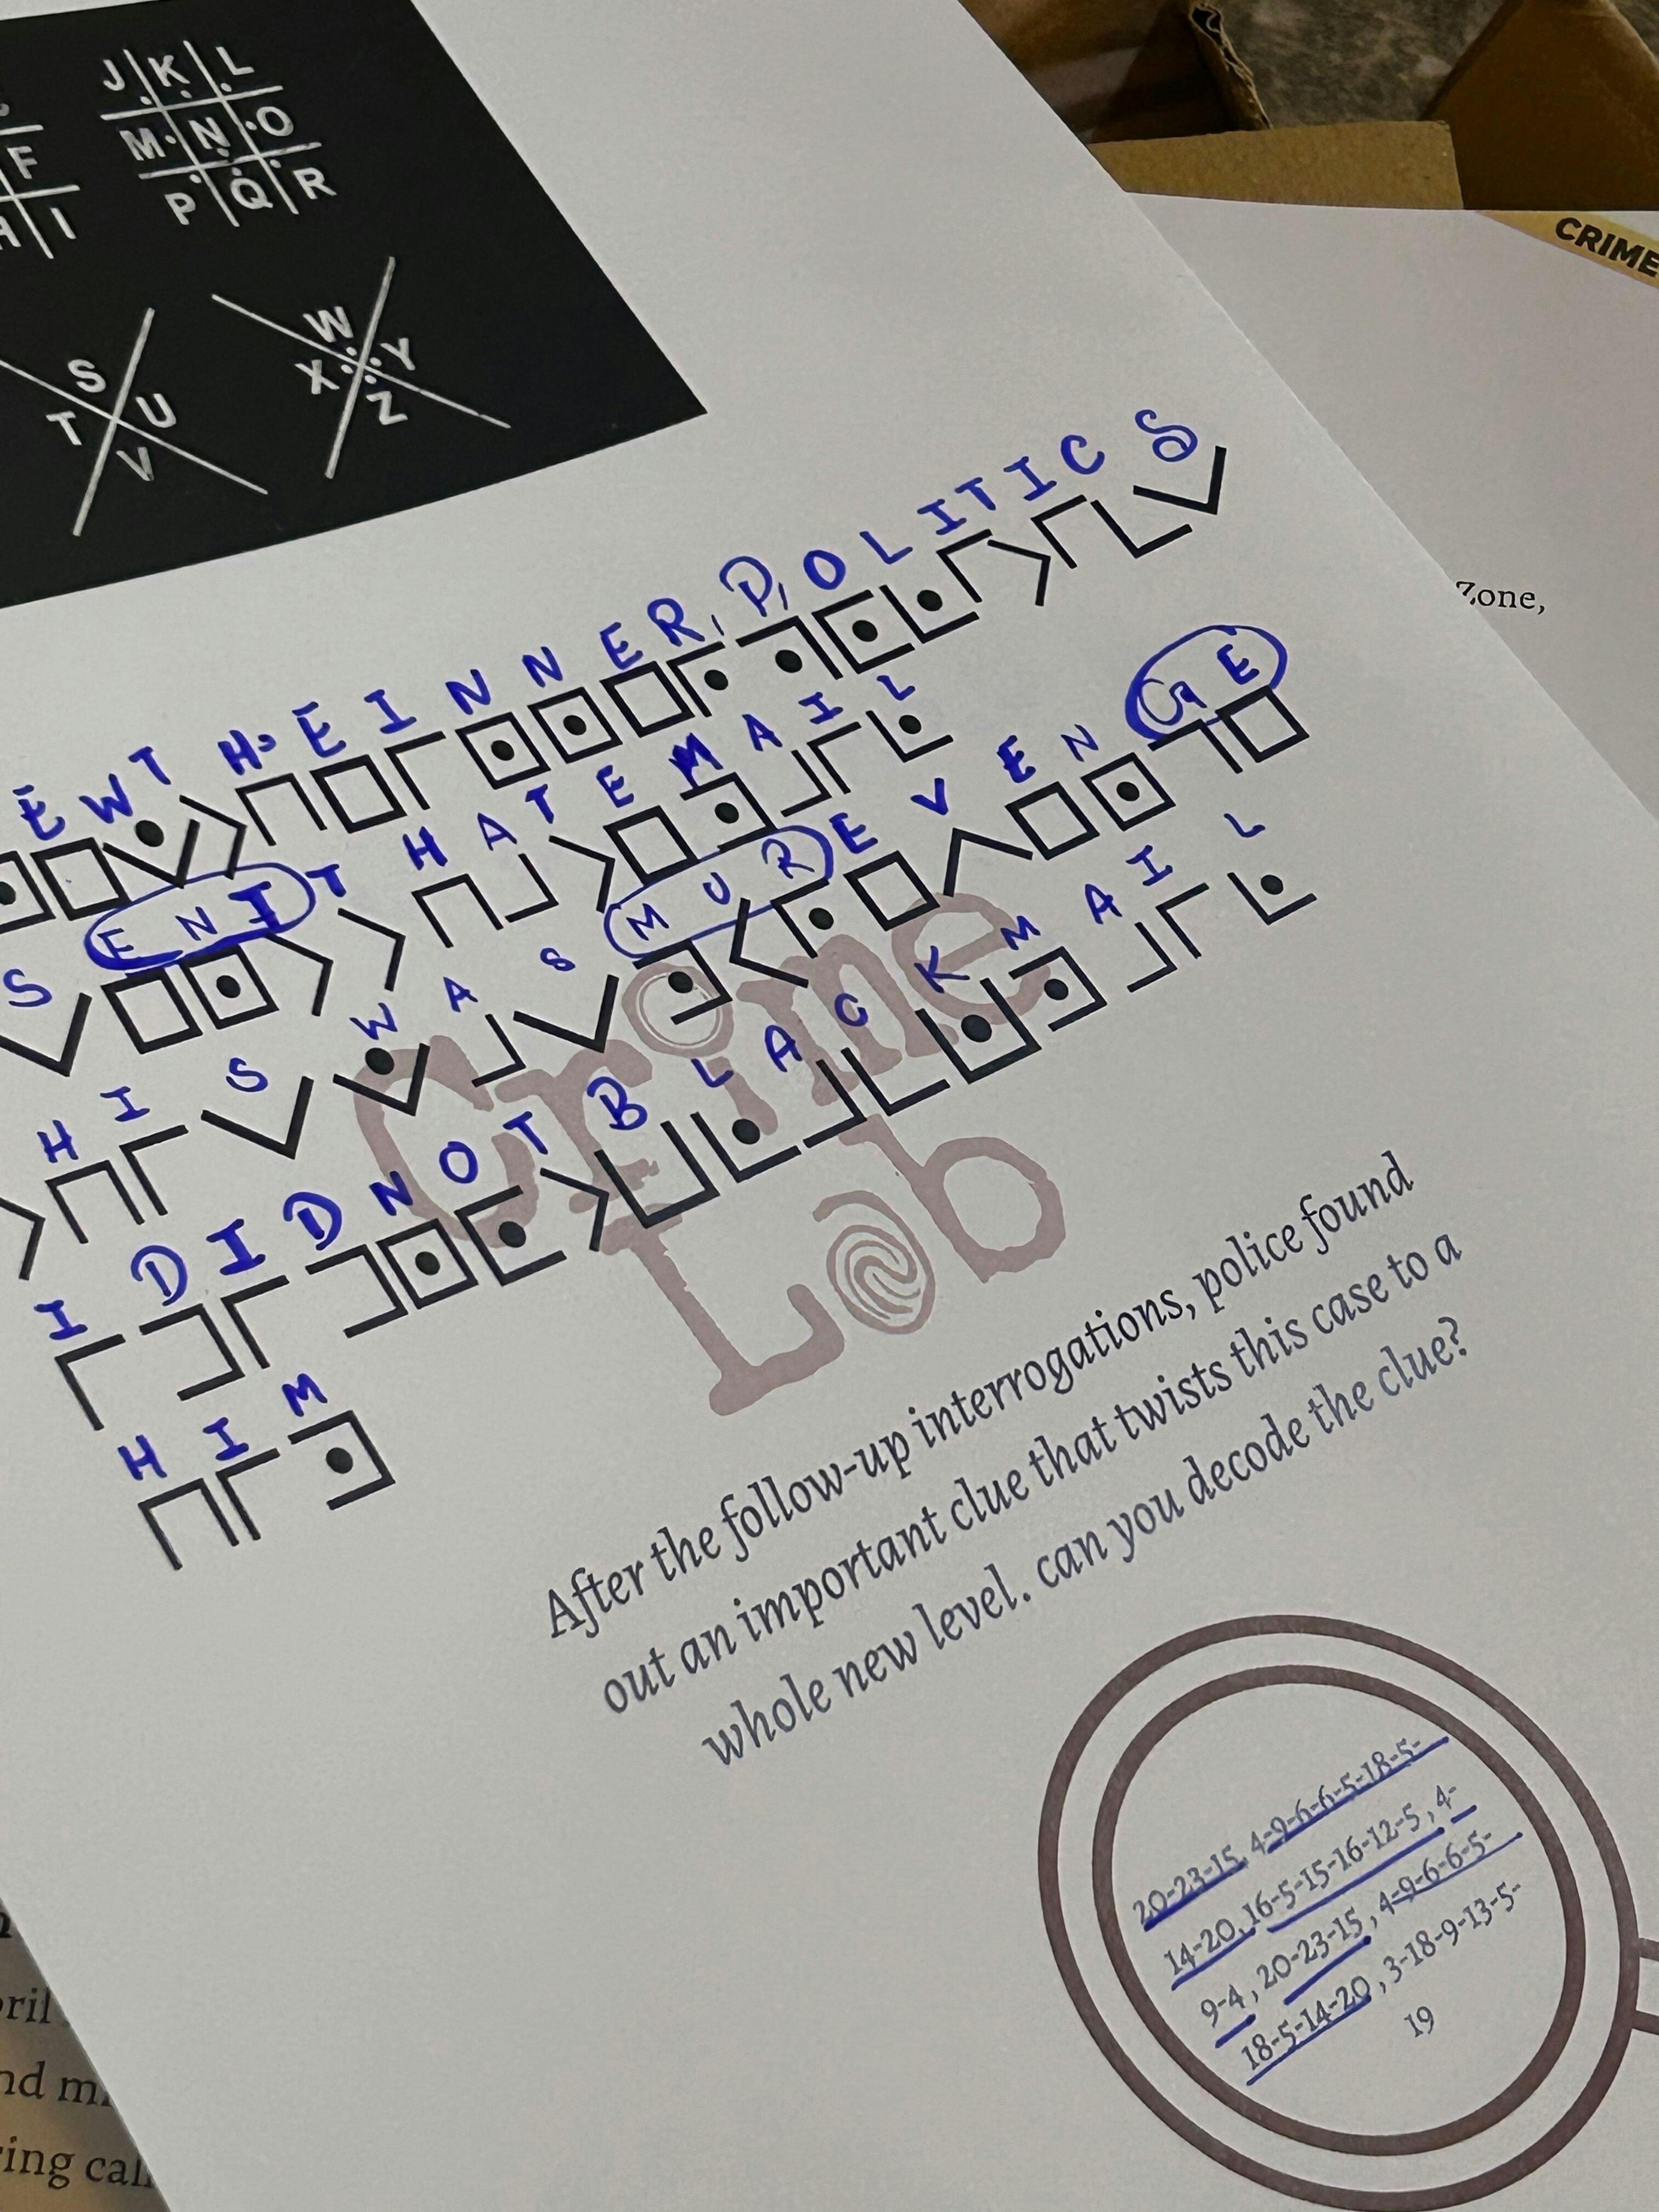 J K L
F M N O
H I P Q R
S W
T U X Y
V Z
CRIME
Zone,
E W T H E I N N E R P O L I T I C S
S E N I T T H A T E M A I L
H I S W A S M U R E V E N G E
I D I D N O T B L A C K M A I L
H I M
Crime
Lab
After the follow-up interrogations, police found
out an important clue that twists this case to a
whole new level. can you decode the clue?
20-23-15, 4-9-6-6-5-18-5-
14-20, 16-5-15-16-12-5, 4-
9-4, 20-23-15, 4-9-6-6-5-
18-5-14-20, 3-18-9-13-5-
19
ril
nd m
ring call